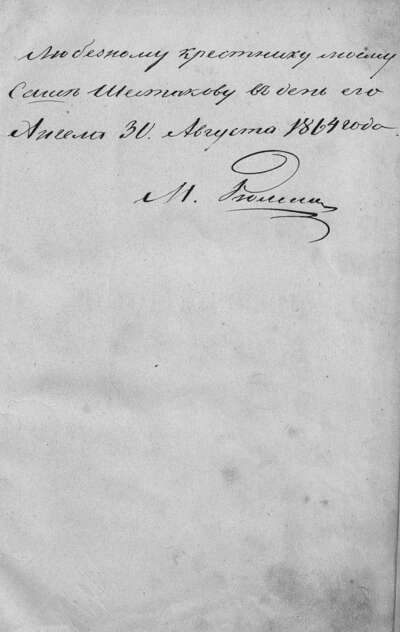 Любезному крестнику моему
Сашѣ Шестакову въ день его
Ангела 30. Августа 1864 года.
М.